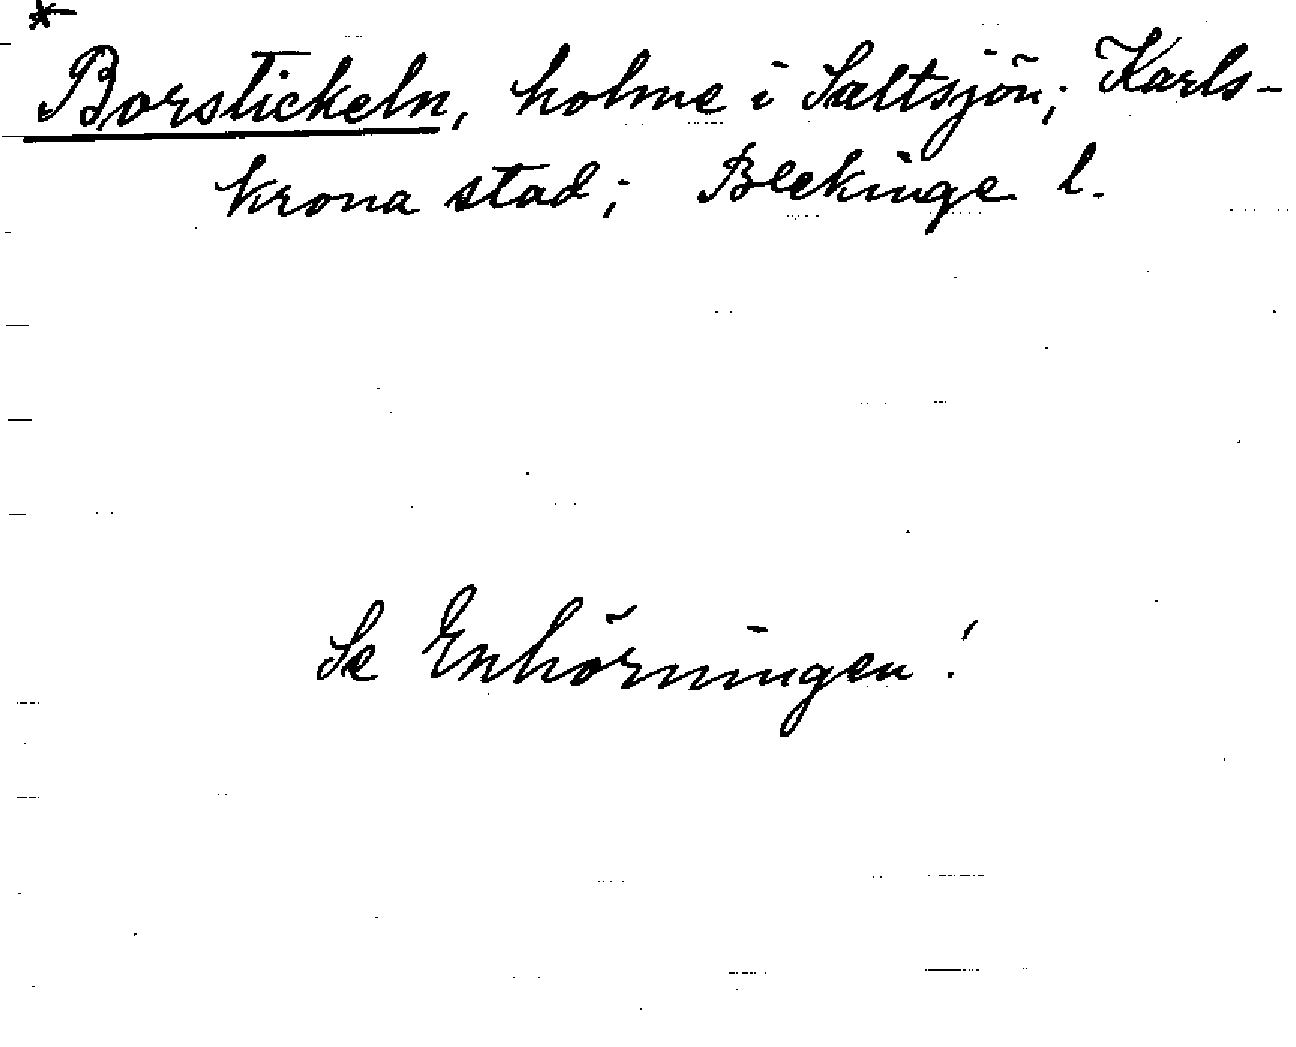 *
Borstickeln, holme i Saltsjön; Karls-
krona stad; Blekinge l.
Se Enhörningen!